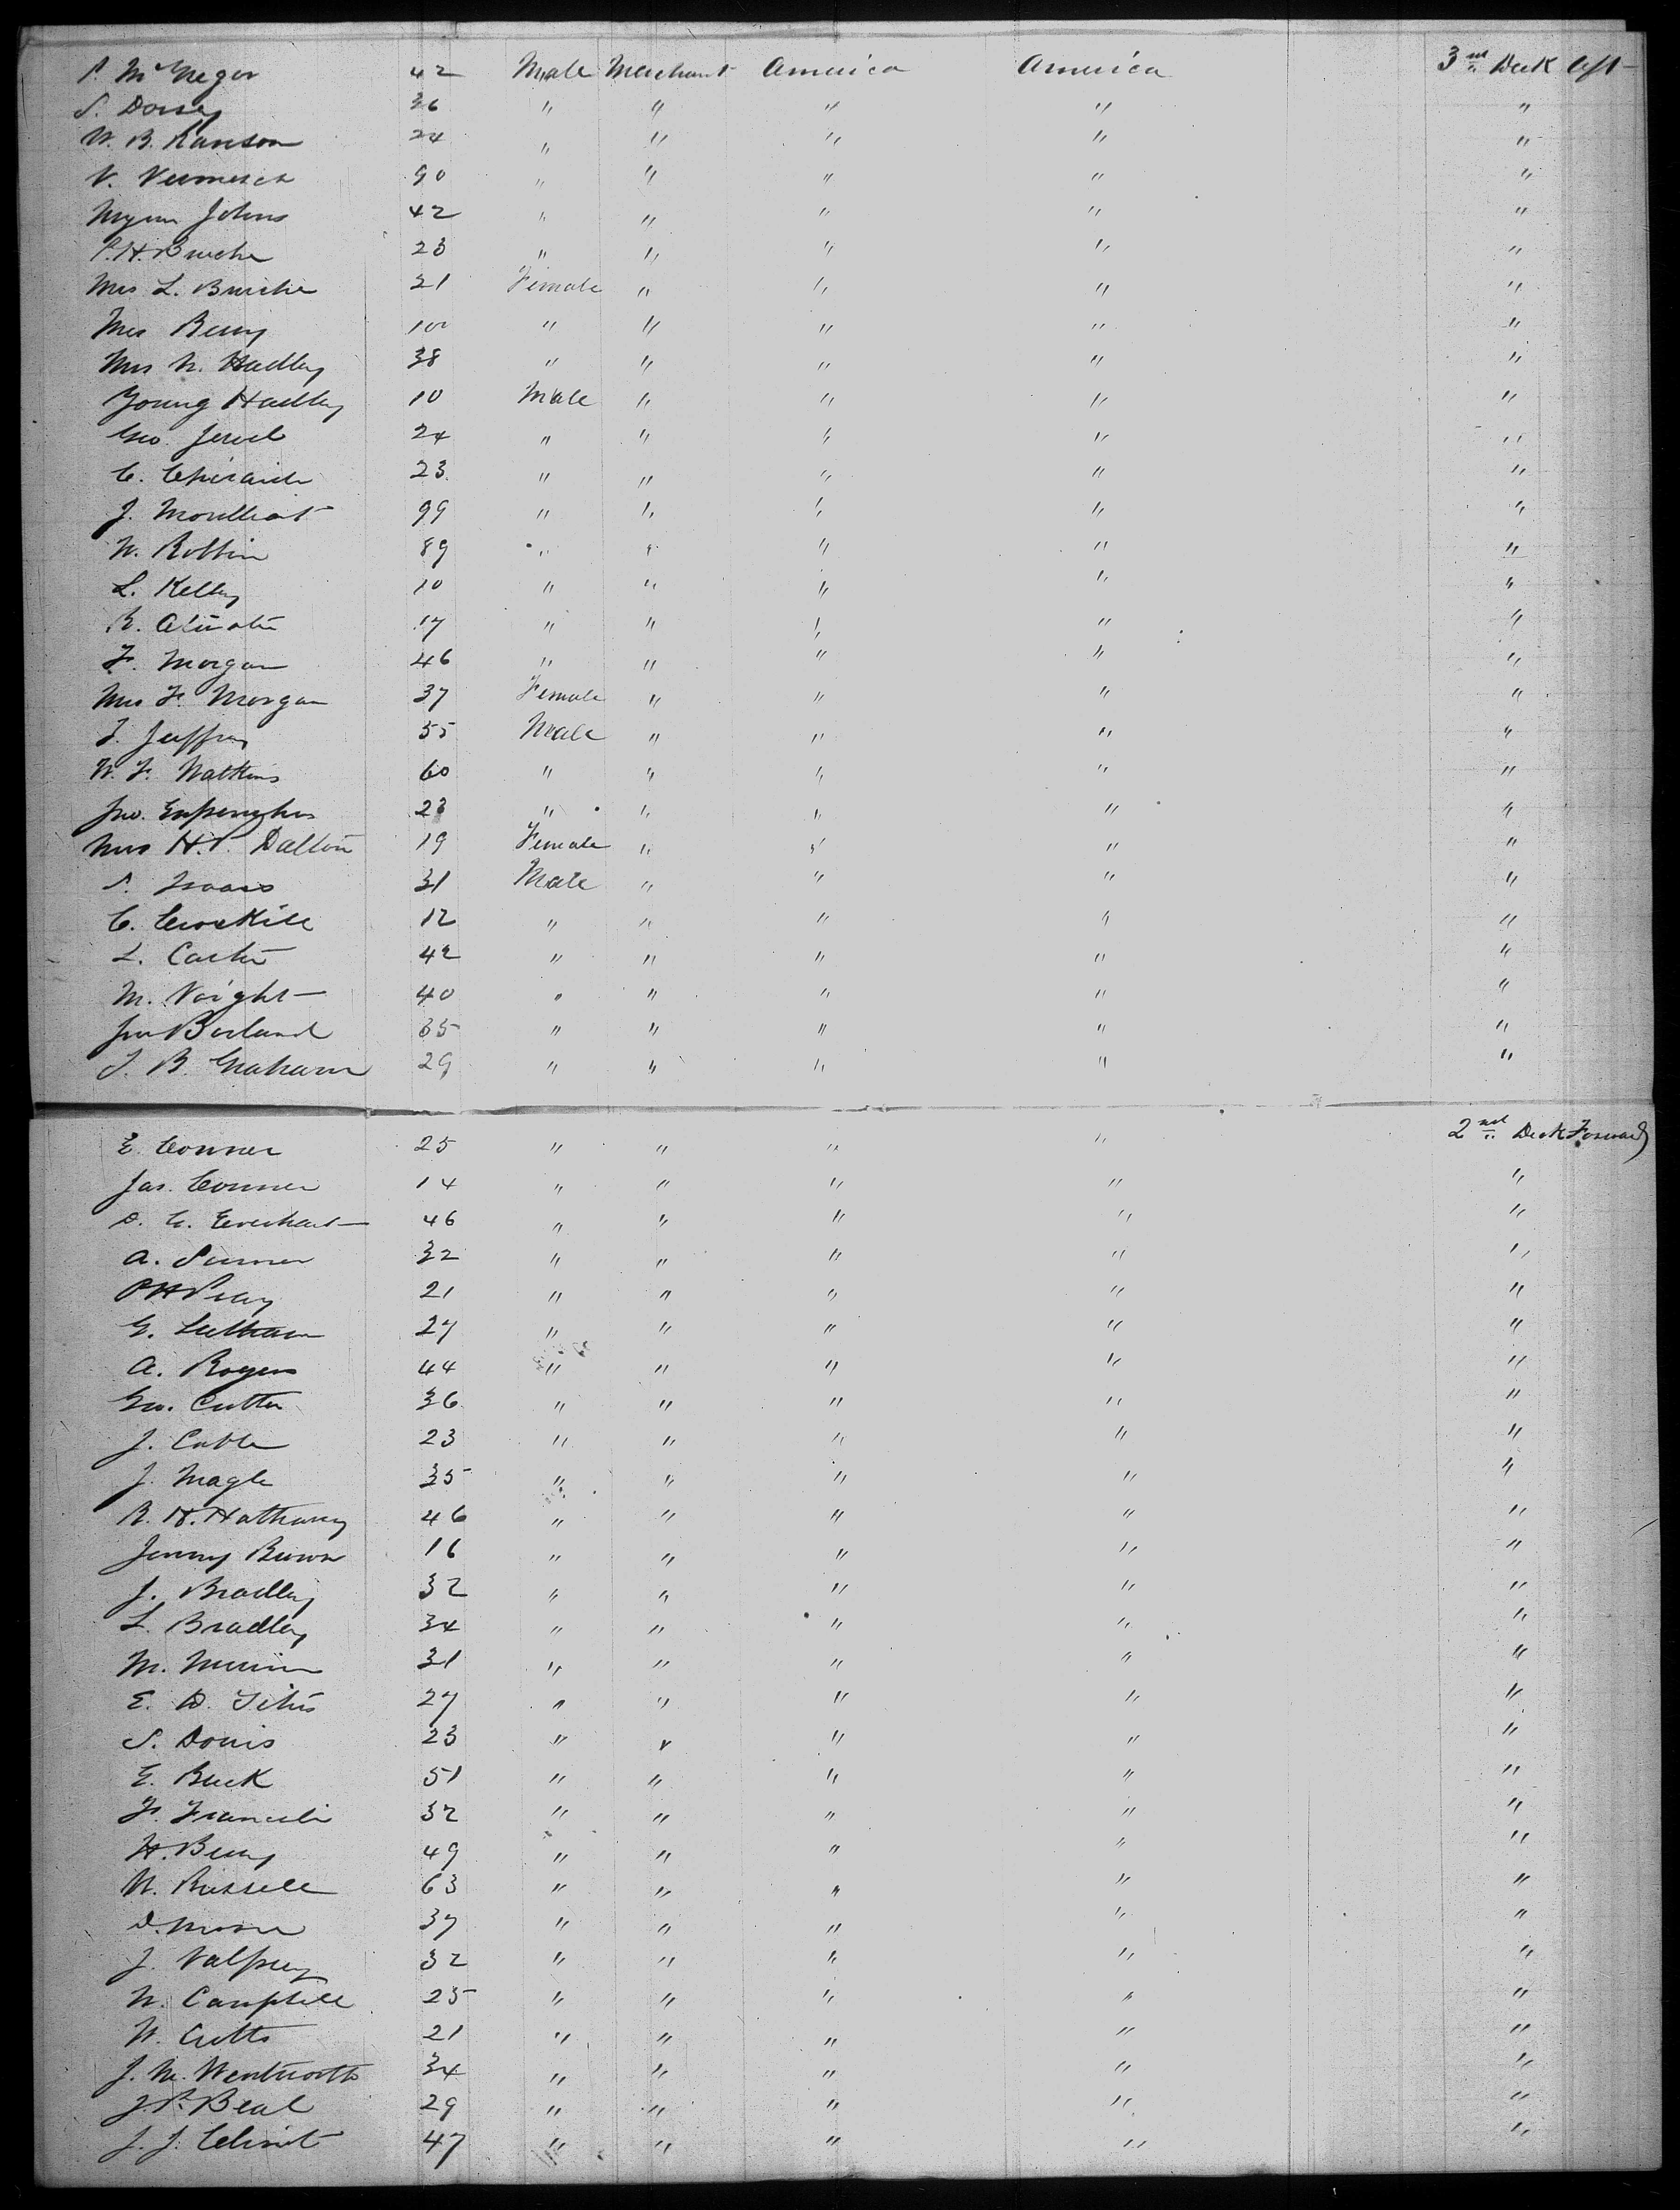 P. McGregor 42 Male Merchant America America 3rd Deck Aft
S. Dorsey 36 " " " " "
W. B. Ranson 24 " " " " "
V. Vermusch 90 " " " " "
Johns 42 " " " " "
P. H. Burche 23 " " " " "
Mrs L. Burche 21 Female " " " "
Mrs Berry 100 " " " " "
Mrs N. Hadley 38 " " " " "
Young Hadley 10 Male " " " "
Geo. Jewel 24 " " " " "
C. 23 " " " " "
J. 99 " " " " "
W. Robbin 89 " " " " "
L. Kelley 10 " " " " "
R. Atwater 17 " " " " "
F. Morgan 46 " " " " "
Mrs F. Morgan 37 Female " " " "
J. Jeffrey 55 Male " " " "
W. F. Watkins 60 " " " " "
Jno. 23 " " " " "
Mrs H. P. Dalton 19 Female " " " "
S. Isaacs 31 Male " " " "
C. Croskill 12 " " " " "
L. Carter 42 " " " " "
M. Voight 40 " " " " "
Jno Borland 35 " " " " "
J. B. Graham 29 " " " " "
E. Conner 25 " " " " 2nd Deck Forward
Jas. Conner 14 " " " " "
D. G. Everhart 46 " " " " "
A. Sumner 32 " " " " "
P H Peay 21 " " " " "
G. Latham 27 " " " " "
A. Rogers 44 " " " " "
Geo. Cutter 36 " " " " "
J. Cable 23 " " " " "
J. Nagle 35 " " " " "
R. H. Hathaway 46 " " " " "
Jenny Brown 16 " " " " "
J. Bradley 32 " " " " "
L. Bradley 34 " " " " "
M. 31 " " " " "
E. D. Titus 27 " " " " "
S. Doris 23 " " " " "
E. Buck 51 " " " " "
F. 32 " " " " "
H. Berry 49 " " " " "
W. Russell 63 " " " " "
D. Moore 37 " " " " "
J. Valfrey 32 " " " " "
W. Campbell 25 " " " " "
W. Cutts 21 " " " " "
J. M. Wentworth 34 " " " " "
J. P. Beal 29 " " " " "
J. J. 47 " " " " "